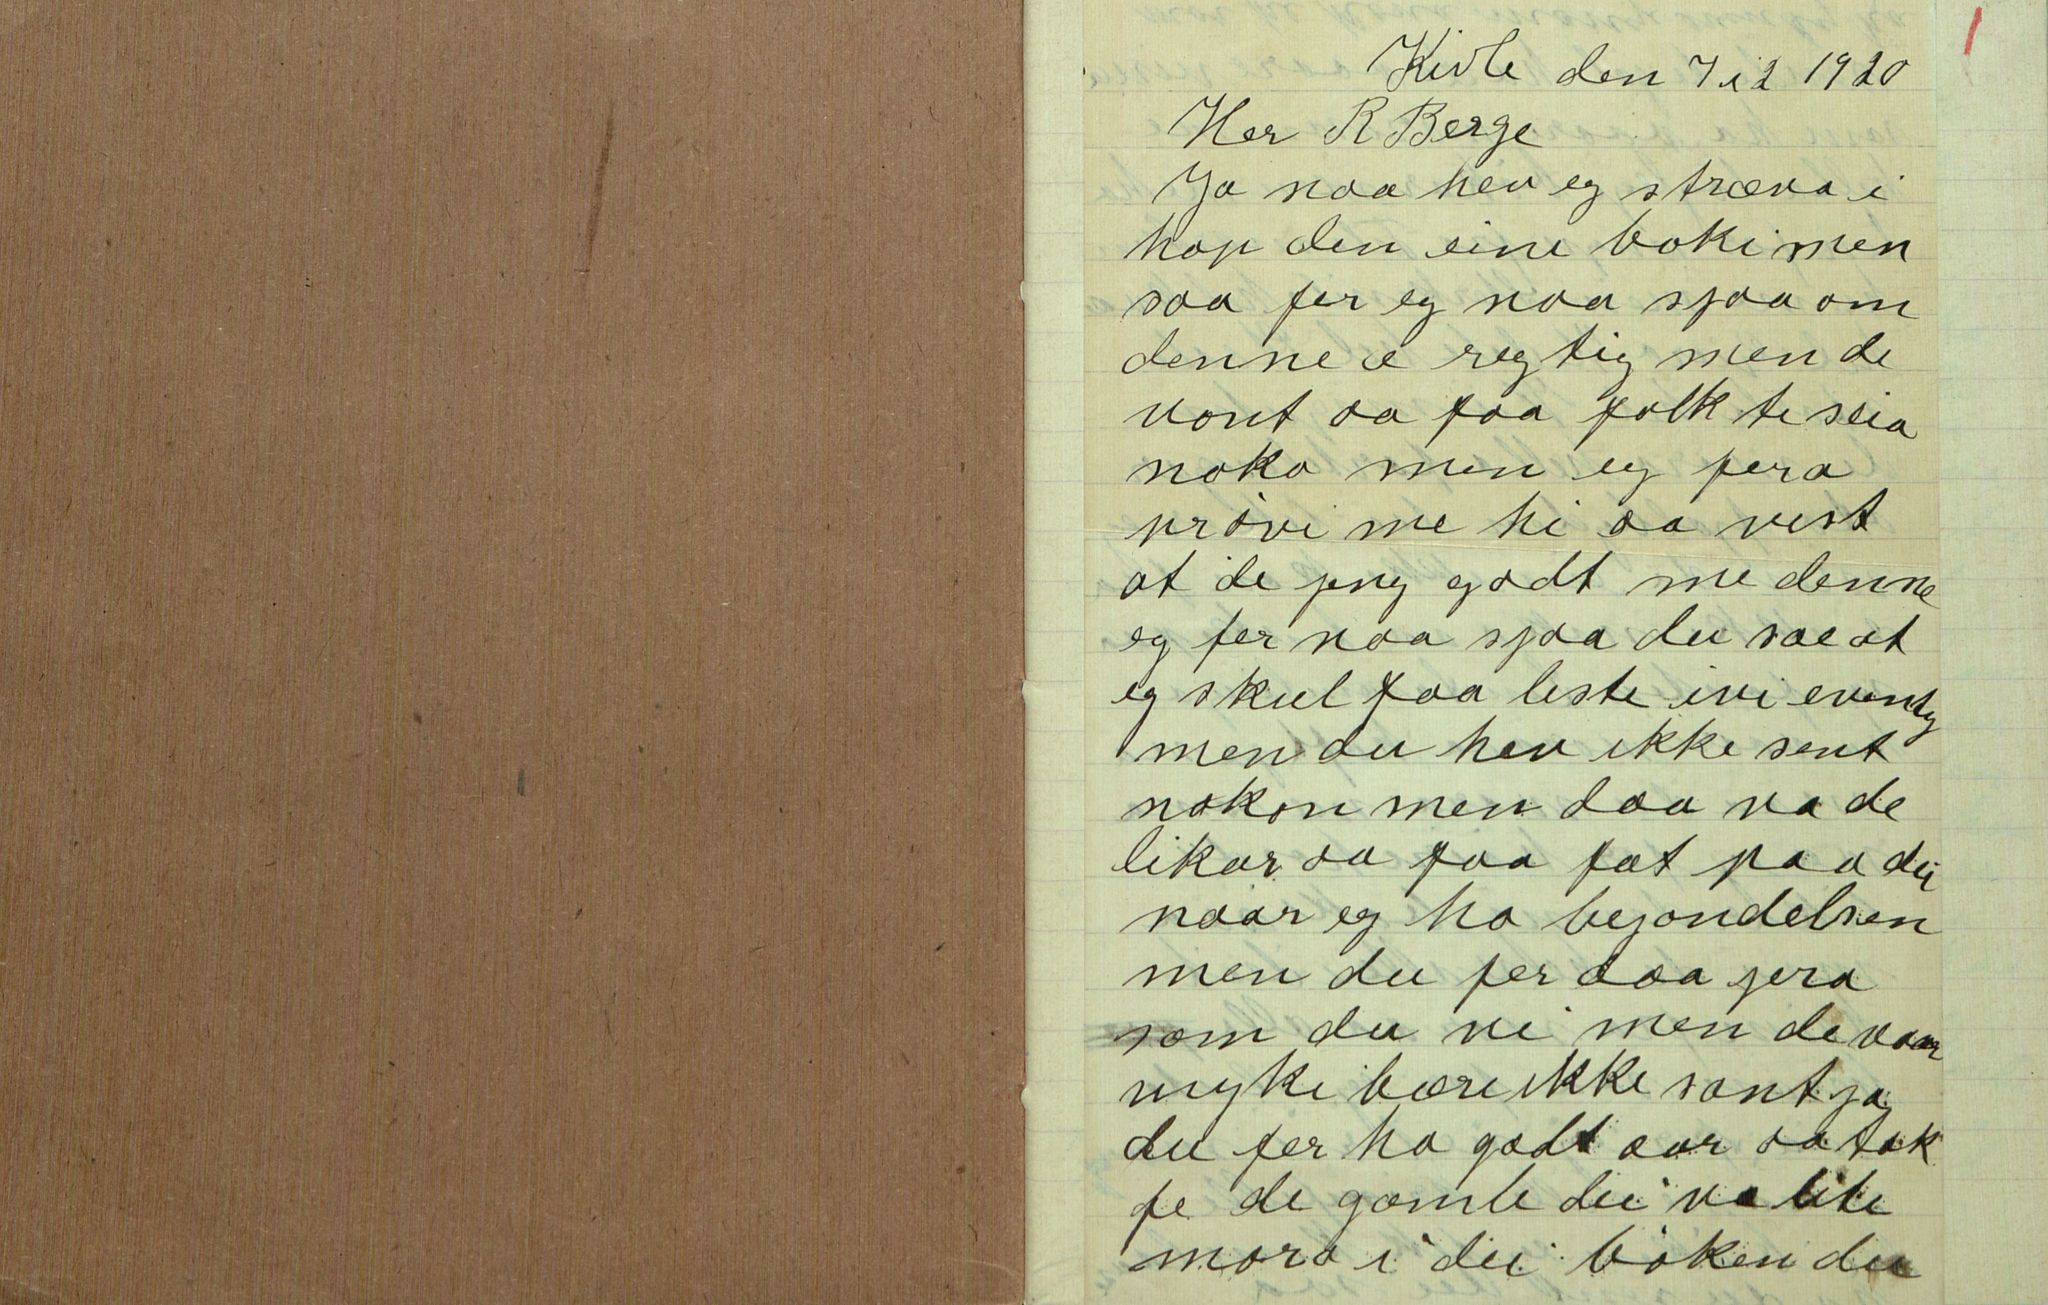 1
Kivle den 7 i 2 1920
Her R Berge
Ja naa hev eg stræva i
hop den eine boki men
saa fer eg naa sjaa om
denne æ regtig men de
vont aa faa folk te seia
noko men eg fera
prøvi me hi aa vist
at de jeng godt me denne
eg fer naa sjaa du sae at
eg skul faa leste ivi eventy
men du hev ikke sent
nokon men daa va de
likar aa faa fat paa dei
naar eg ha begondelsen
men du fer daa jera
som du vi men de vaar
myki bære ikke sant ja
du fer ha godt aar aa tak
fe de gamle dei va lite
moro i dei bøken du